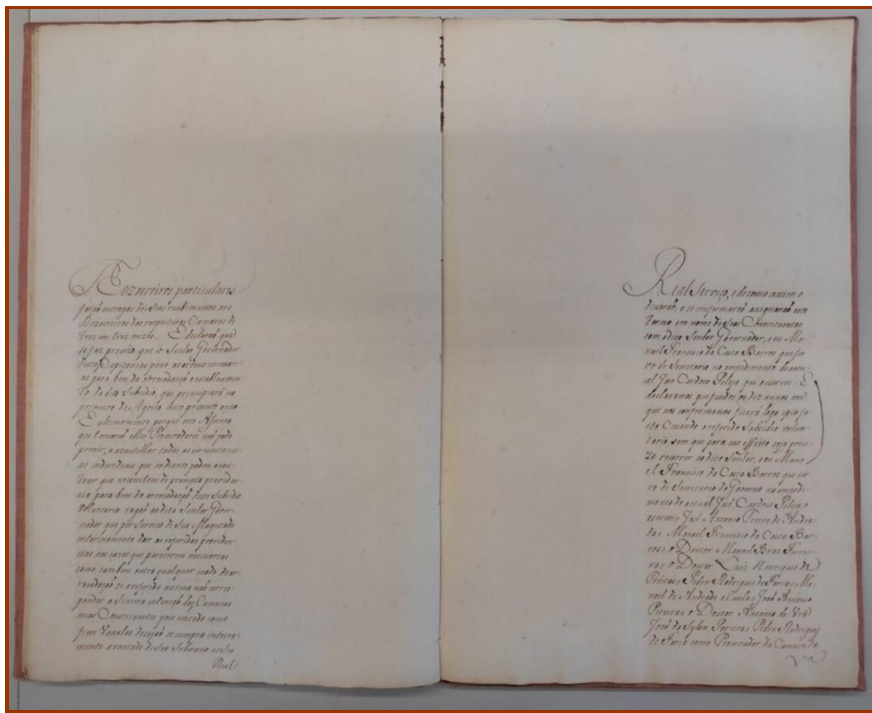 Tezoureiros particulares
farão entregas dos seos rendimentos aos
Tezoureiros das respectivas Camaras de
tres em tres mezes. E declarão que
se faz precizo que o Senhor Governador
e Capitão para as ordens necessari
as para bem da arrecadação e estabelecimen
to do dito Subsidio, que principiará no
primeiro de Agosto deste prezente anno
E ultimamente porque este Assento
que tomarão elles Procuradores não pode
prevenir, e acautellar todas as circunstanci
as que podem acon
tecer que necessitem de prompta providen
cia para bem da arrecadação deste Subsidio
Voluntario rogão ao dito Senhor Gover
nador que por Serviço de Sua Magestade
interinamente dar as referidas providen
cias nos cazos que parecerem necessarios
como tambem outro qualquer modo de ar
recadação se o referido não corres
ponder a sincera intenção das Camaras
seus Constituintes pois como
fieis Vassalos dezejão se cumpra inteira
mente a vontade de seo Soberano
Real
Real Serviço, e de como assim o
disserão, e se conformarão assignarão este
Termo em nome de seos Constituintes
com o dito Senhor Governador, e eu Ma
noel Francisco da Costa Barros que sir
vo de Secretario no impedimento do actu
al Jozé Cardozo Peleja que escrevi. E
declararão que findos os dez annos em
que nos conformamos ficará logo ipso fa
cto Cessando o referido Subsidio volun
tario, sem que para esse effeito seja preci
zo recorrer ao dito Senhor, e eu Mano
el Francisco da Costa Barros que sir
vo de Secretario do Governo no impedi
mento do actual Jozé Cardozo Peleja
escrevi Jozé Antonio Freire de Andra
da Manoel Francisco da Costa Bar
ros o Doutor Manoel Braz Ferrei
ra o Doutor Luiz Henrique de
Freitas Pedro Rodrigues de Faria Ma
noel de Andrade João Antonio
Pereira o Doutor Antonio
Jozé da Sylva Pereira Pedro Rodrigues
de Faria como Procurador da Camara da
Va